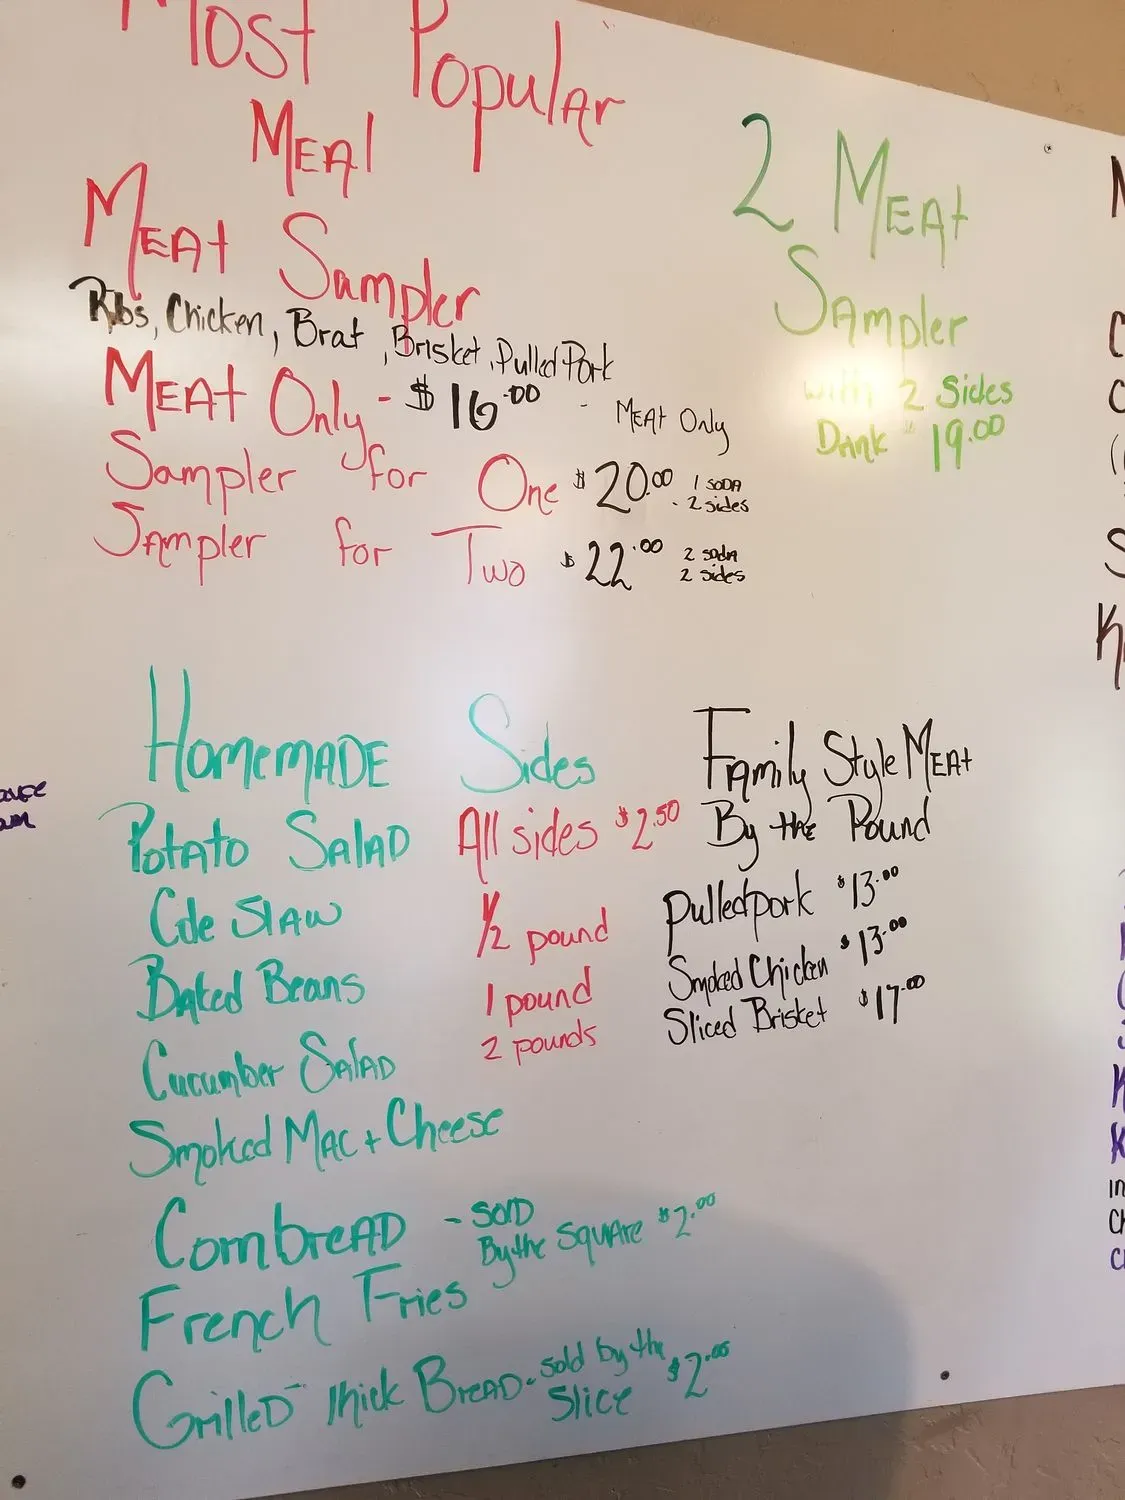 Most Popular
Meal
Meat Sampler
Ribs, Chicken, Brat, Brisket, Pulled Pork
Meat Only - $16.00 - Meat Only
Sampler for One $20.00 1 soda
- 2 sides
Sampler for Two $22.00 2 soda
2 sides
2 Meat
Sampler
with 2 Sides
Drink $19.00
Homemade Sides
Potato Salad
Cole Slaw
Baked Beans
Cucumber Salad
Smoked Mac + Cheese
Cornbread - sold
By the square $2.00
French Fries
Grilled - Thick Bread - sold by the
slice $2.00
All sides $2.50
1/2 pound
1 pound
2 pounds
Family Style Meat
By the Pound
Pulled pork $13.00
Smoked Chicken $13.00
Sliced Brisket $17.00